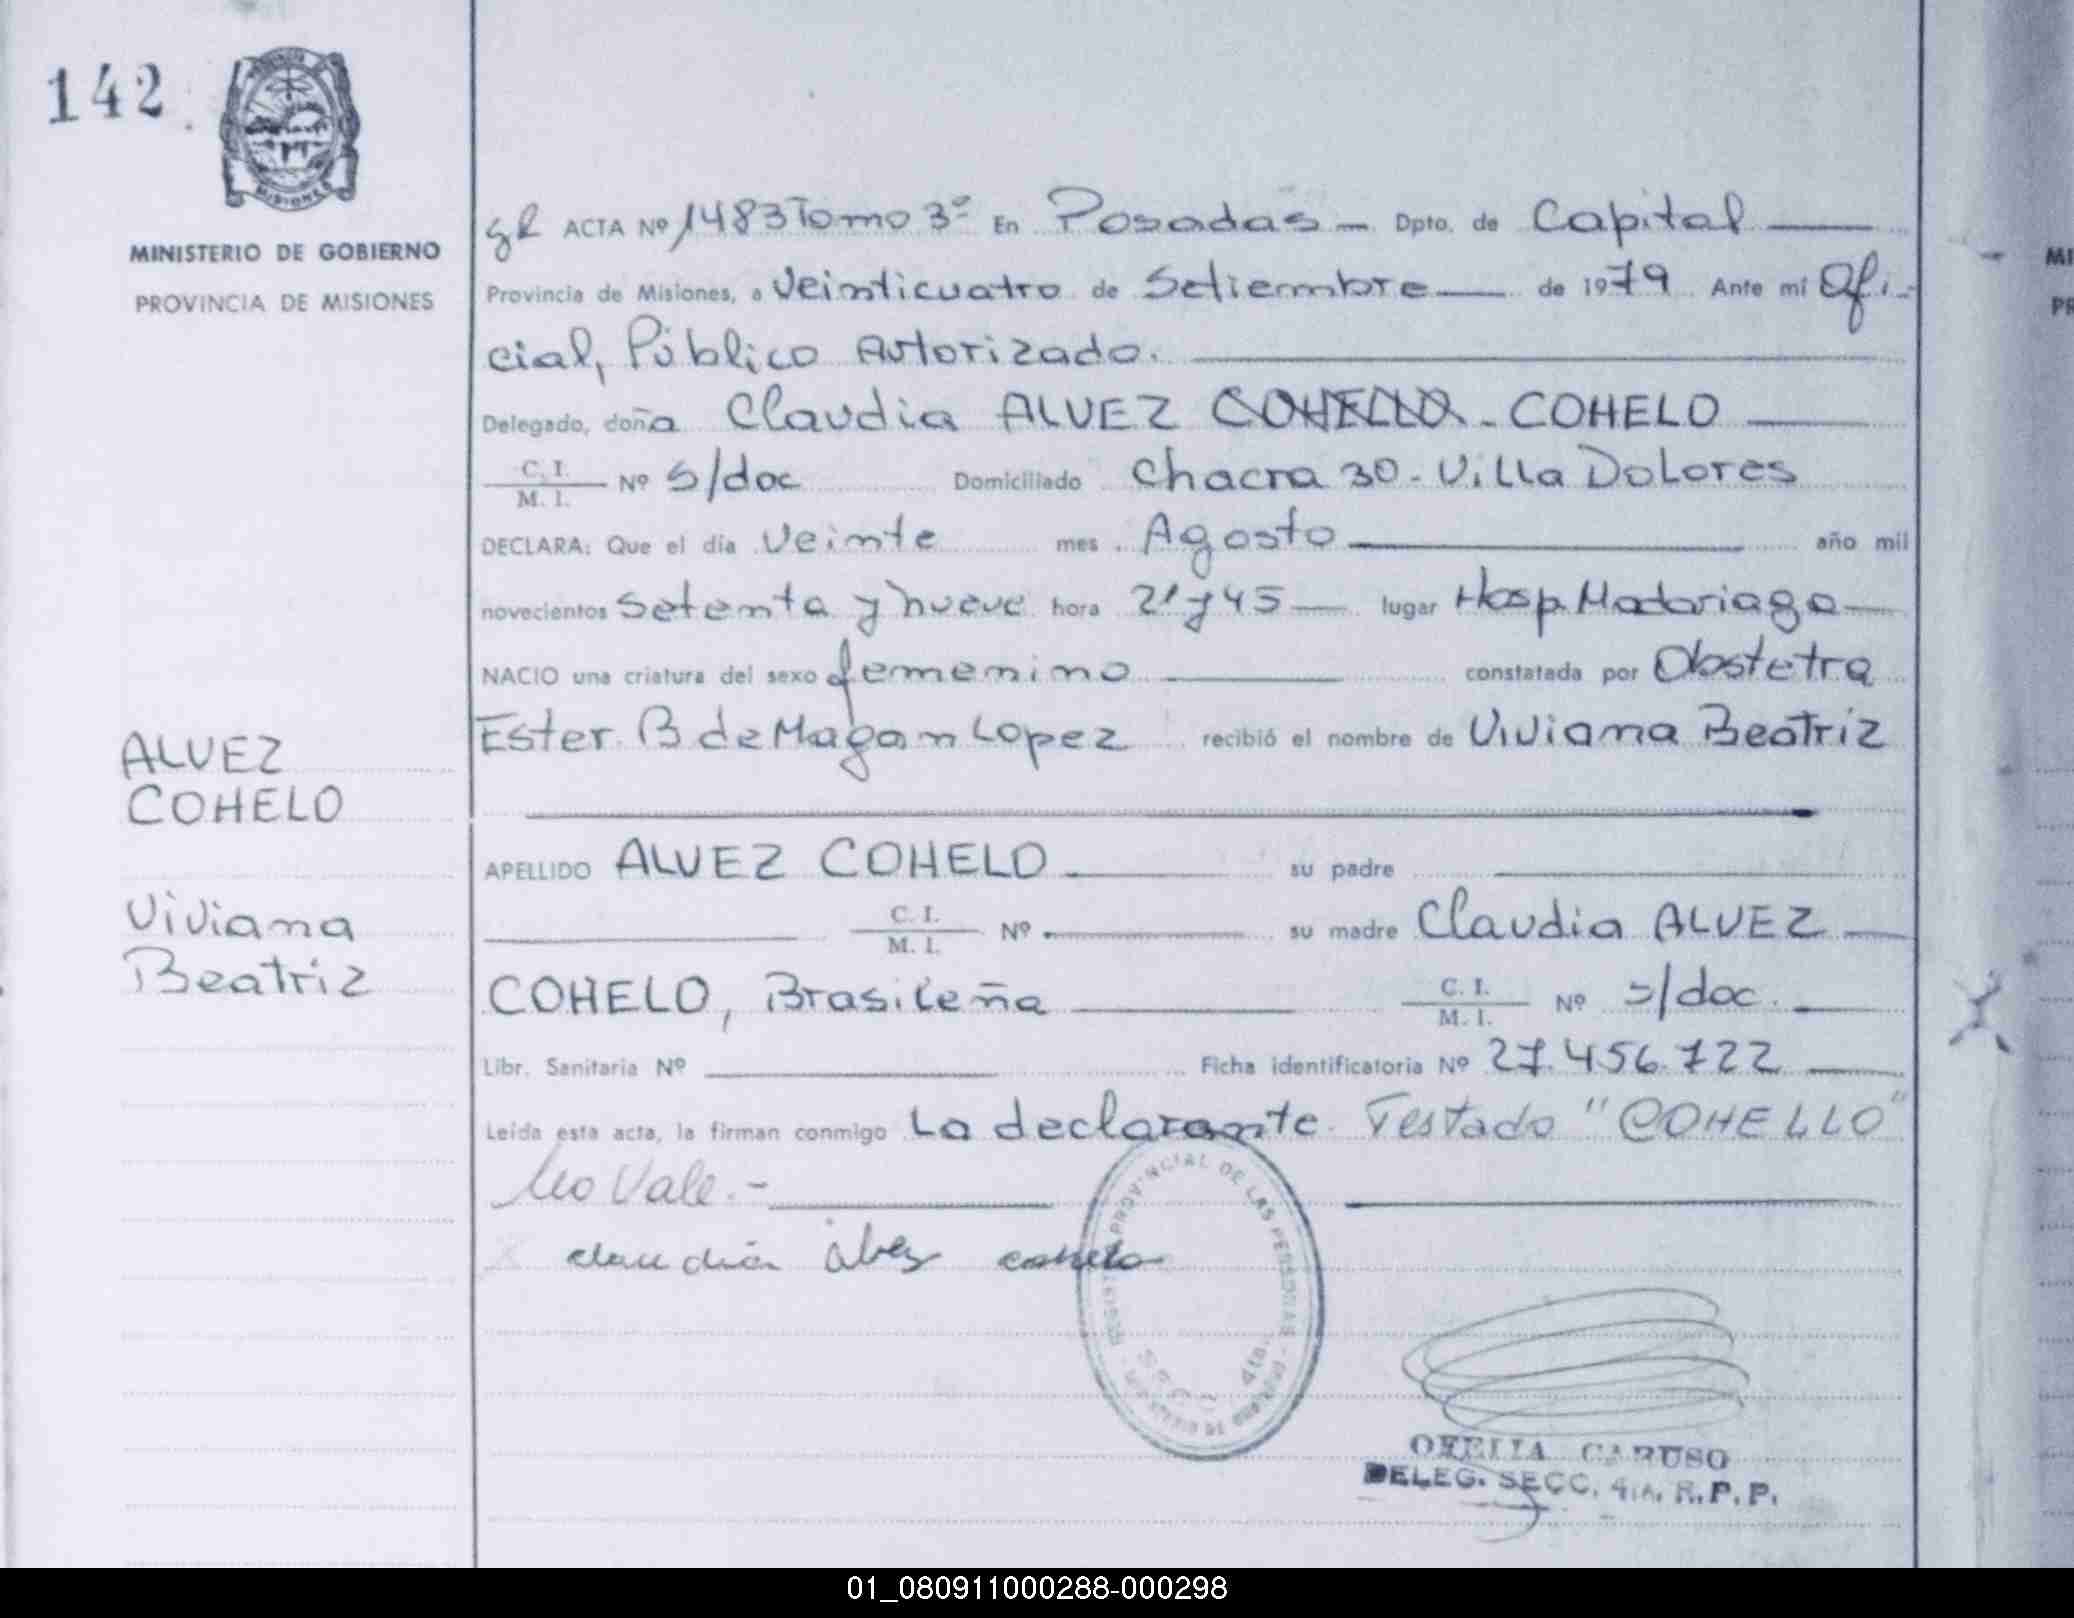 142
MISIONES
MINISTERIO DE GOBIERNO
PROVINCIA DE MISIONES
ALVEZ
COHELO
Viviana
Beatriz
ACTA Nº 1483 Tomo 3º En Posadas - Dpto. de Capital
Provincia de Misiones, a Veinticuatro de Setiembre de 1979 Ante mí Ofi-
cial, Público Autorizado.
Delegado, doña Claudia ALVEZ COHELLO - COHELO
C. I.
M. I. Nº s/doc Domiciliado Chacra 30 - Villa Dolores
DECLARA: Que el día Veinte mes Agosto año mil
novecientos Setenta y nueve hora 21 y 45 lugar Hosp. Madariaga
NACIO una criatura del sexo femenino constatada por Obstetra
Ester B de Magan Lopez recibió el nombre de Viviana Beatriz
APELLIDO ALVEZ COHELO su padre
C. I.
M. I. Nº su madre Claudia ALVEZ
COHELO, Brasileña C. I.
M. I. Nº s/doc.
Libr. Sanitaria Nº Ficha identificatoria Nº 27.456.722
Leída esta acta, la firman conmigo La declarante. Testado "COHELLO"
No Vale.-
claudia alvez cohelo
PROVINCIAL DE LAS PERSONAS
OFELIA CARUSO
DELEG. SECC. 4ta. R. P. P.
MI
PR
01_080911000288-000298